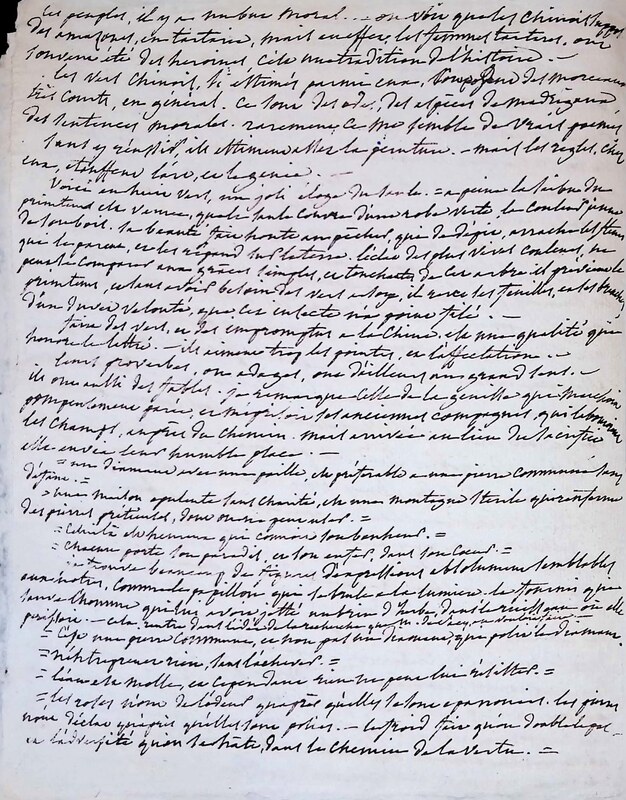 ces peuples, il y a un but moral. -- on voit que les Chinois
des amazones, en tartarie, mais en effet, les femmes tartares, ont
souvent été des heroïnes, c'est une tradition de l'histoire. --
les vers Chinois, si estimés parmi eux, sont des morceaux
très courts, en général. ce sont des odes, des espèces de madrigaux
des sentences morales. rarement, ce me semble de vrais poemes
sans y réussir, ils estiment assez la peinture. -- mais les règles, chez
eux, étouffent l'art, et le génie. --
Voici en huit vers, un joli éloge du saule. = a peine la saison du
printems est venue, que le saule couvre d'une robe verte, la couleur jaune
de son bois. sa beauté fait honte au pêcher, qui de dépit, arrache les fleurs
que le parent, et les répand sur la terre. l'éclat des plus vives couleurs, ne
peut se comparer aux graces simples, et touchantes de cet arbre il prévient le
printems, et sans avoir besoin des vers a soye, il revêt ses feuilles, et ses branches
d'un duvet velouté, que cet insecte n'a point filé. --
faire des vers, et des impromptus a la Chine, est une qualité qui
honore le lettré. -- ils aiment trop les pointes, et l'affectation. --
leurs proverbes, ou adages, ont d'ailleurs un grand sens. --
ils ont aussi des fables. je remarque celle de la genisse qui marchoit
pompeusement parée, et méprisoit ses anciennes compagnes, qui
les champs, auprès du chemin. mais arrivée au lieu du sacrifice
elle envia leur humble place. --
= un diamant avec une paille, est préférable a une pierre commune sans
défaut. =
= une maison opulente sans charité, est une montagne sterile qui renferme
des pierres prétieuses, dont on ne peut user. =
= celui là est heureux qui connoit son bonheur. =
= chacun porte son paradis, et son enfer, dans son coeur. =
je trouve beaucoup de figures d'expressions absolument semblables
aux notres, comme le papillon qui se brule a la lumiere. la fourmi que
sauve l'homme qui lui avoit jetté un brin d'herbe dans le ruisseau où elle
perissoit. -- cela rentre dans l'idée de la recherche
= c'est une pierre commune, et non pas un diamant, qui polit le diamant.
= n'entreprenez rien, sans l'achever. =
= l'eau est molle, et cependant rien ne peut lui résister. =
= les roses n'ont de l'odeur qu'après qu'elles se sont epanouies. les pierres
n'ont d'éclat qu'après qu'elles sont polies. -- le froid fait qu'on double le pas --
et l'adversité qu'on se hâte, dans le chemin de la vertu. =